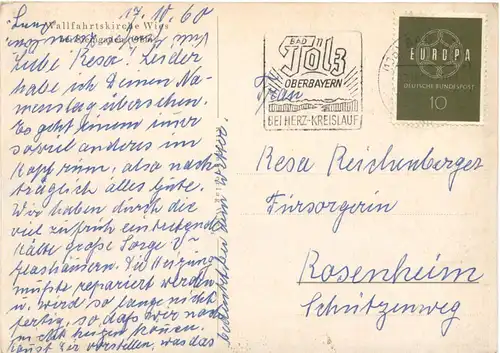 Wallfahrtskirche Wies
17.10.60
Liebe Resa! Leider
habe ich Deinen Na-
menstag übersehen.
Es geht einem immer
soviel anderes im
Kopf rum, also nach-
träglich alles Gute.
Wir haben durch die
viel zu früh eintretende
Kälte große Sorge
Glashäusern. Die Heizung
mußte repariert werden
u. wird so lange nicht
fertig, so daß wir noch
nicht heizen können.
Kannst Dir vorstellen, was das
BAD
Tölz
OBERBAYERN
BEI HERZ-KREISLAUF
EUROPA
DEUTSCHE BUNDESPOST
10
Frau
Resa Reichenberger
Fürsorgerin
Rosenheim
Schützenweg